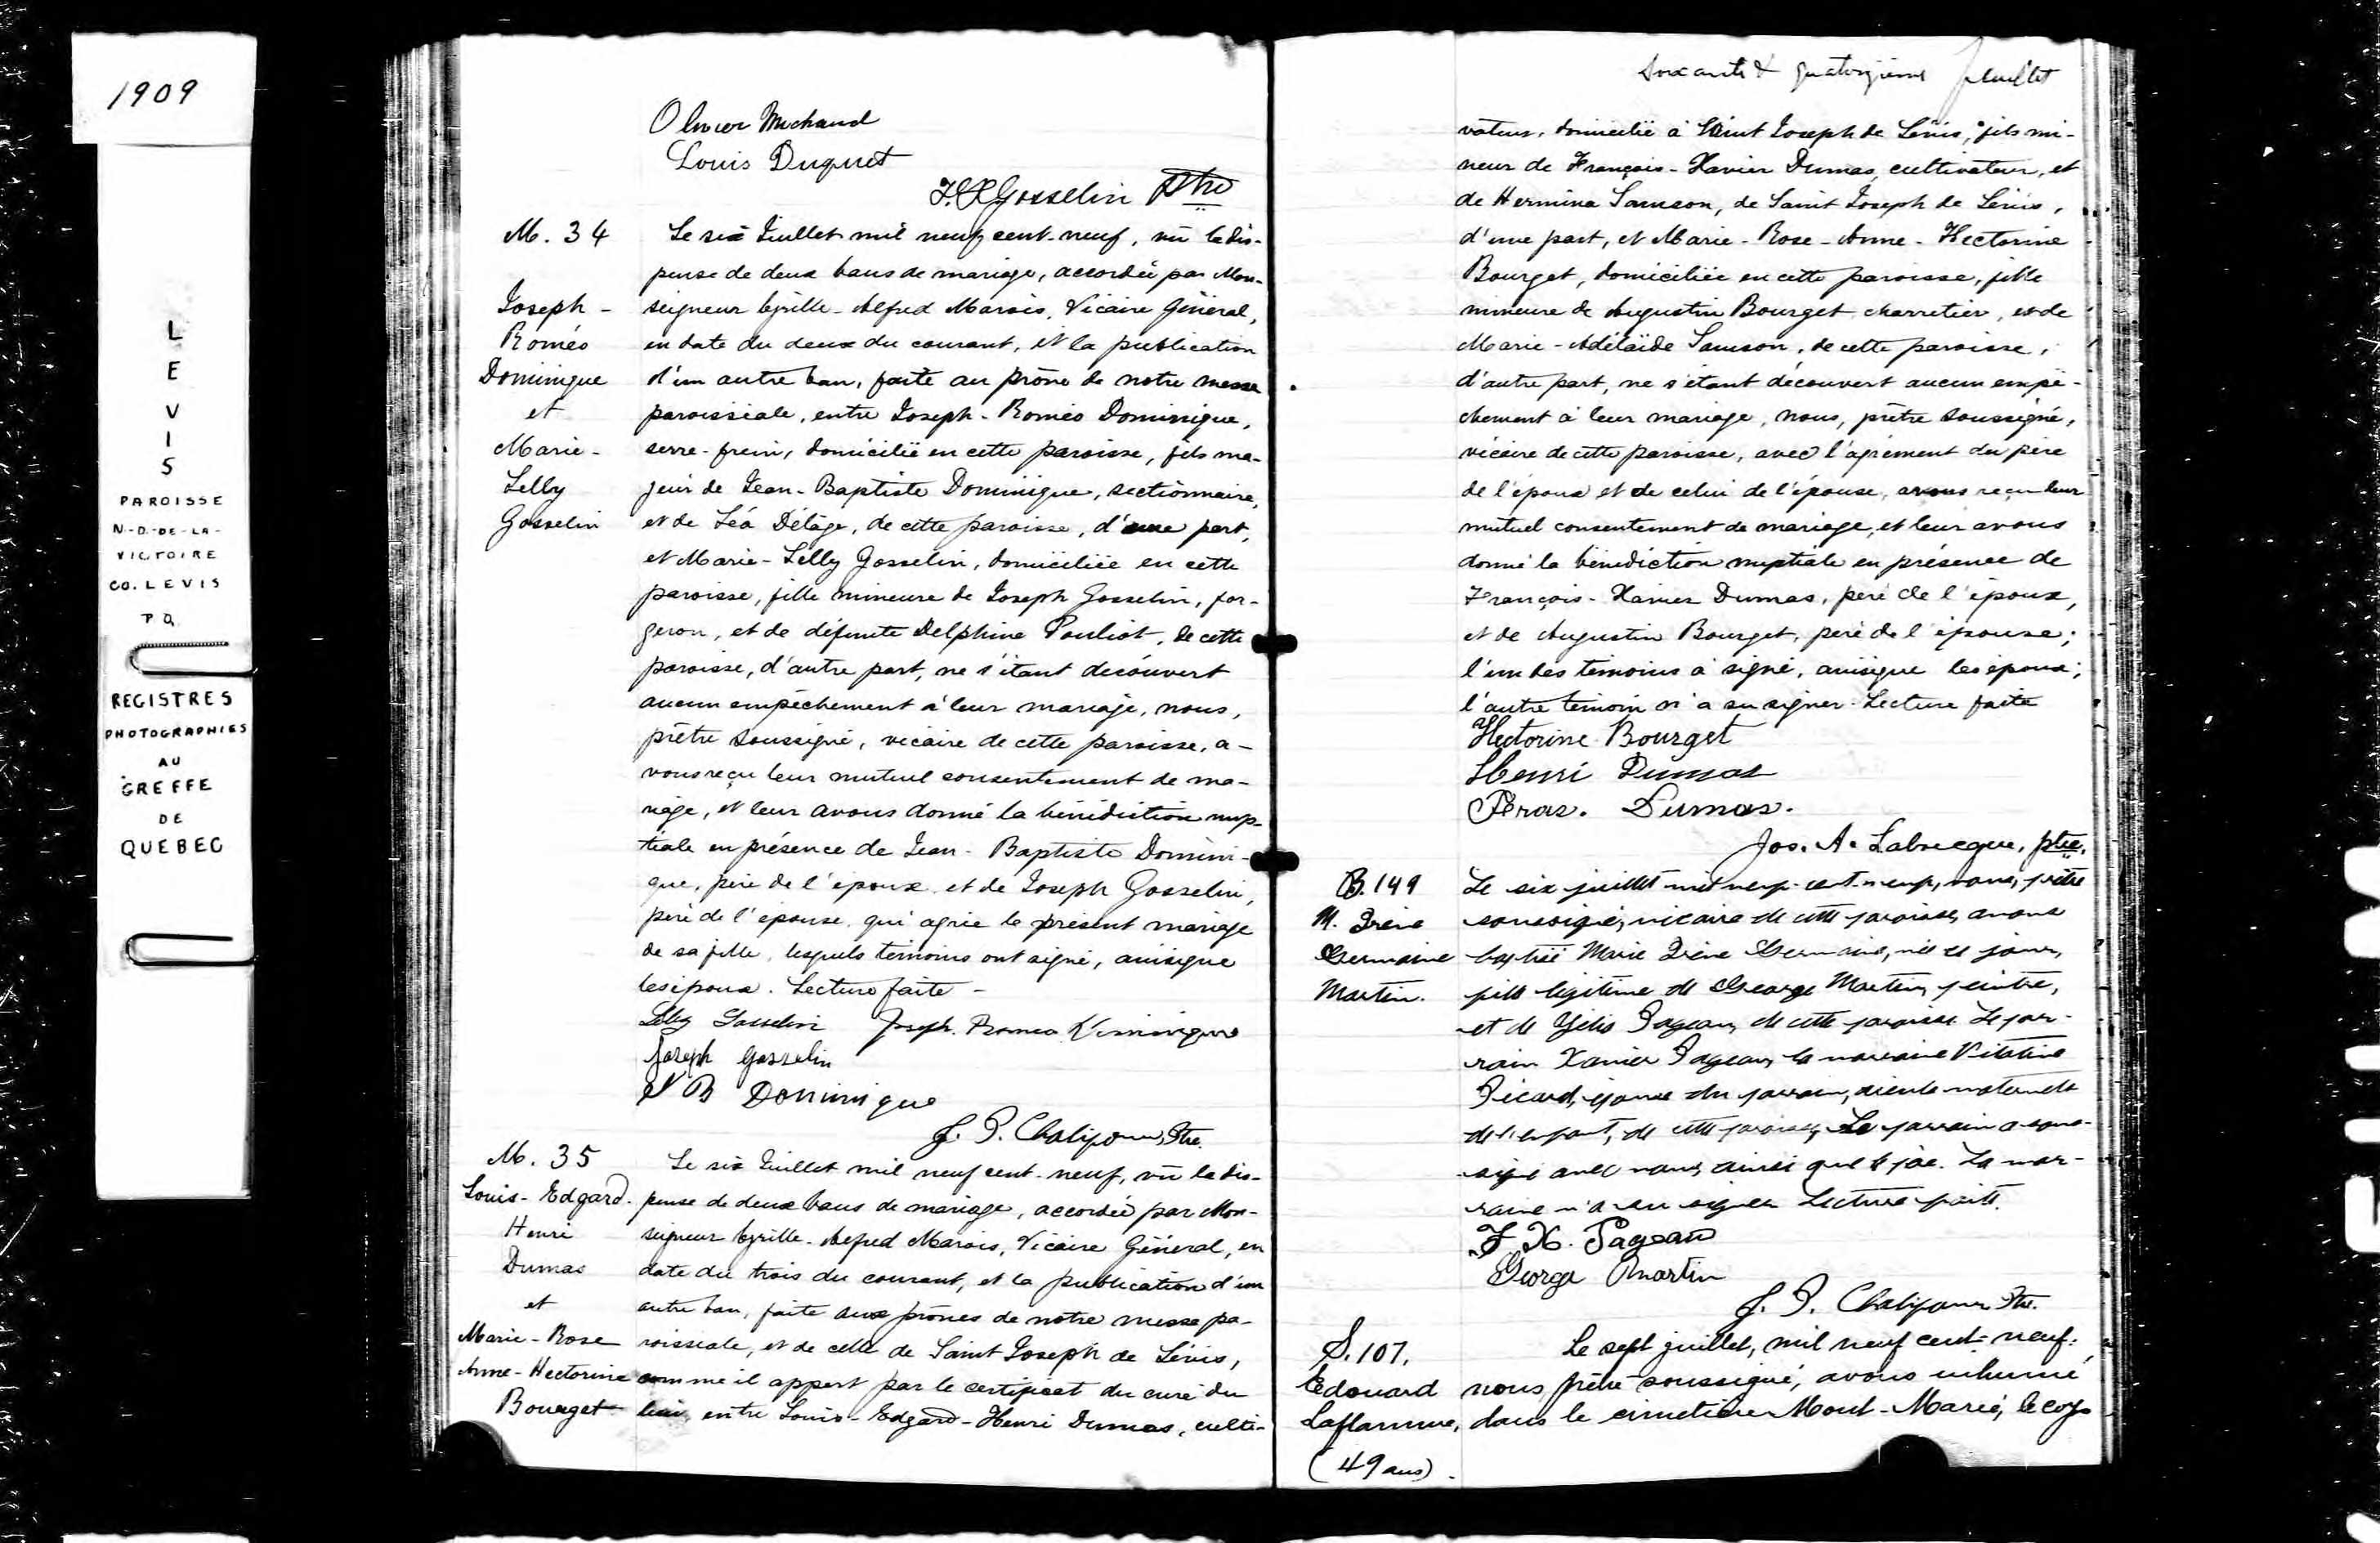 1909
L
E
V
I
S
PAROISSE
N-D-DE-LA-
VICTOIRE
CO. LEVIS
P Q.
REGISTRES
PHOTOGRAPHIES
AU
GREFFE
DE
QUEBEC
Olivier Michaud
Louis Duquet
F. X Gosselin Ptre
M. 34
Joseph -
Roméo
Dominique
et
Marie-
Lelly
Gosselin
Le six Juillet mil neuf cent-neuf, vu la dis-
pense de deux bans de mariage, accordée par Mon-
seigneur Cyrille-Alfred Marois, Vicaire Général,
en date du deux du courant, et la publication
d'un autre ban, faite au prône de notre messe
paroissiale, entre Joseph-Roméo Dominique,
serre-frein, domicilié en cette paroisse, fils ma-
jeur de Jean-Baptiste Dominique, sectionnaire,
et de Léa Délâge, de cette paroisse, d'une part,
et Marie-Lelly Gosselin, domiciliée en cette
paroisse, fille mineure de Joseph Gosselin, for-
geron, et de défunte Delphine Pouliot, de cette
paroisse, d'autre part, ne s'étant découvert
aucun empêchement à leur mariage, nous,
prêtre soussigné, vicaire de cette paroisse, a-
vons reçu leur mutuel consentement de ma-
riage, et leur avons donné la bénédiction nup-
tiale en présence de Jean-Baptiste Domini-
que, père de l'époux, et de Joseph Gosselin,
père de l'épouse, qui agrée le présent mariage
de sa fille, lesquels témoins ont signé, ainsique
les époux. Lecture faite -
Lelly Gosselin Joseph. Romeo Dominique
Joseph Gosselin
J B Dominique
J. P. Chalifour, Ptre.
M. 35
Louis-Edgard-
Henri
Dumas
et
Marie-Rose
Anne-Hectorine
Bourget
Le six Juillet mil neuf cent-neuf, vu la dis-
pense de deux bans de mariage, accordée par Mon-
seigneur Cyrille-Alfred Marois, Vicaire Général, en
date du trois du courant, et la publication d'un
autre ban, faite aux prônes de notre messe pa-
roissiale, et de celle de Saint Joseph de Lévis,
comme il appert par le certificat du curé du
lieu, entre Louis-Edgard-Henri Dumas, culti-
Soixante & quatorzième feuillet
vateur, domicilié à Saint Joseph de Lévis, fils mi-
neur de François-Xavier Dumas, cultivateur, et
de Hermina Samson, de Saint Joseph de Lévis,
d'une part, et Marie-Rose-Anne-Hectorine
Bourget, domiciliée en cette paroisse, fille
mineure de Augustin Bourget charretier, et de
Marie-Adélaïde Samson, de cette paroisse,
d'autre part, ne s'étant découvert aucun empê-
chement à leur mariage, nous, prêtre soussigné,
vicaire de cette paroisse, avec l'agrément du père
de l'époux et de celui de l'épouse, avons reçu leur
mutuel consentement de mariage, et leur avons
donné la bénédiction nuptiale en présence de
François-Xavier Dumas, père de l'époux,
et de Augustin Bourget, père de l'épouse;
l'un des témoins a signé, ainsique les époux;
l'autre témoin n'a su signer. Lecture faite
Hectorine Bourget
Henri Dumas
Fras. Dumas.
Jos. A. Labrecque, ptre.
B. 149
M. Irène
Germaine
Martin.
Le six juillet mil neuf-cent-neuf, nous, prêtre
soussigné, vicaire de cette paroisse, avons
baptisé Marie Irène Germaine, née ce jour,
fille légitime de George Martin, peintre,
et de Pageau, de cette paroisse. Le par-
rain Xavier Pageau, la marraine
Picard, épouse du parrain, aïeule maternelle
de l'enfant, de cette paroisse, Le parrain a sous-
signé avec nous, ainsi que le père. La mar-
raine n'a su signer. Lecture faite.
F X. Pageau
George Martin
J. P. Chalifour Ptre.
S. 107.
Edouard
Laflamme,
(49 ans).
Le sept juillet, mil neuf cent-neuf,
nous prêtre soussigné, avons inhumé
dans le cimetière Mont-Marie, le corps